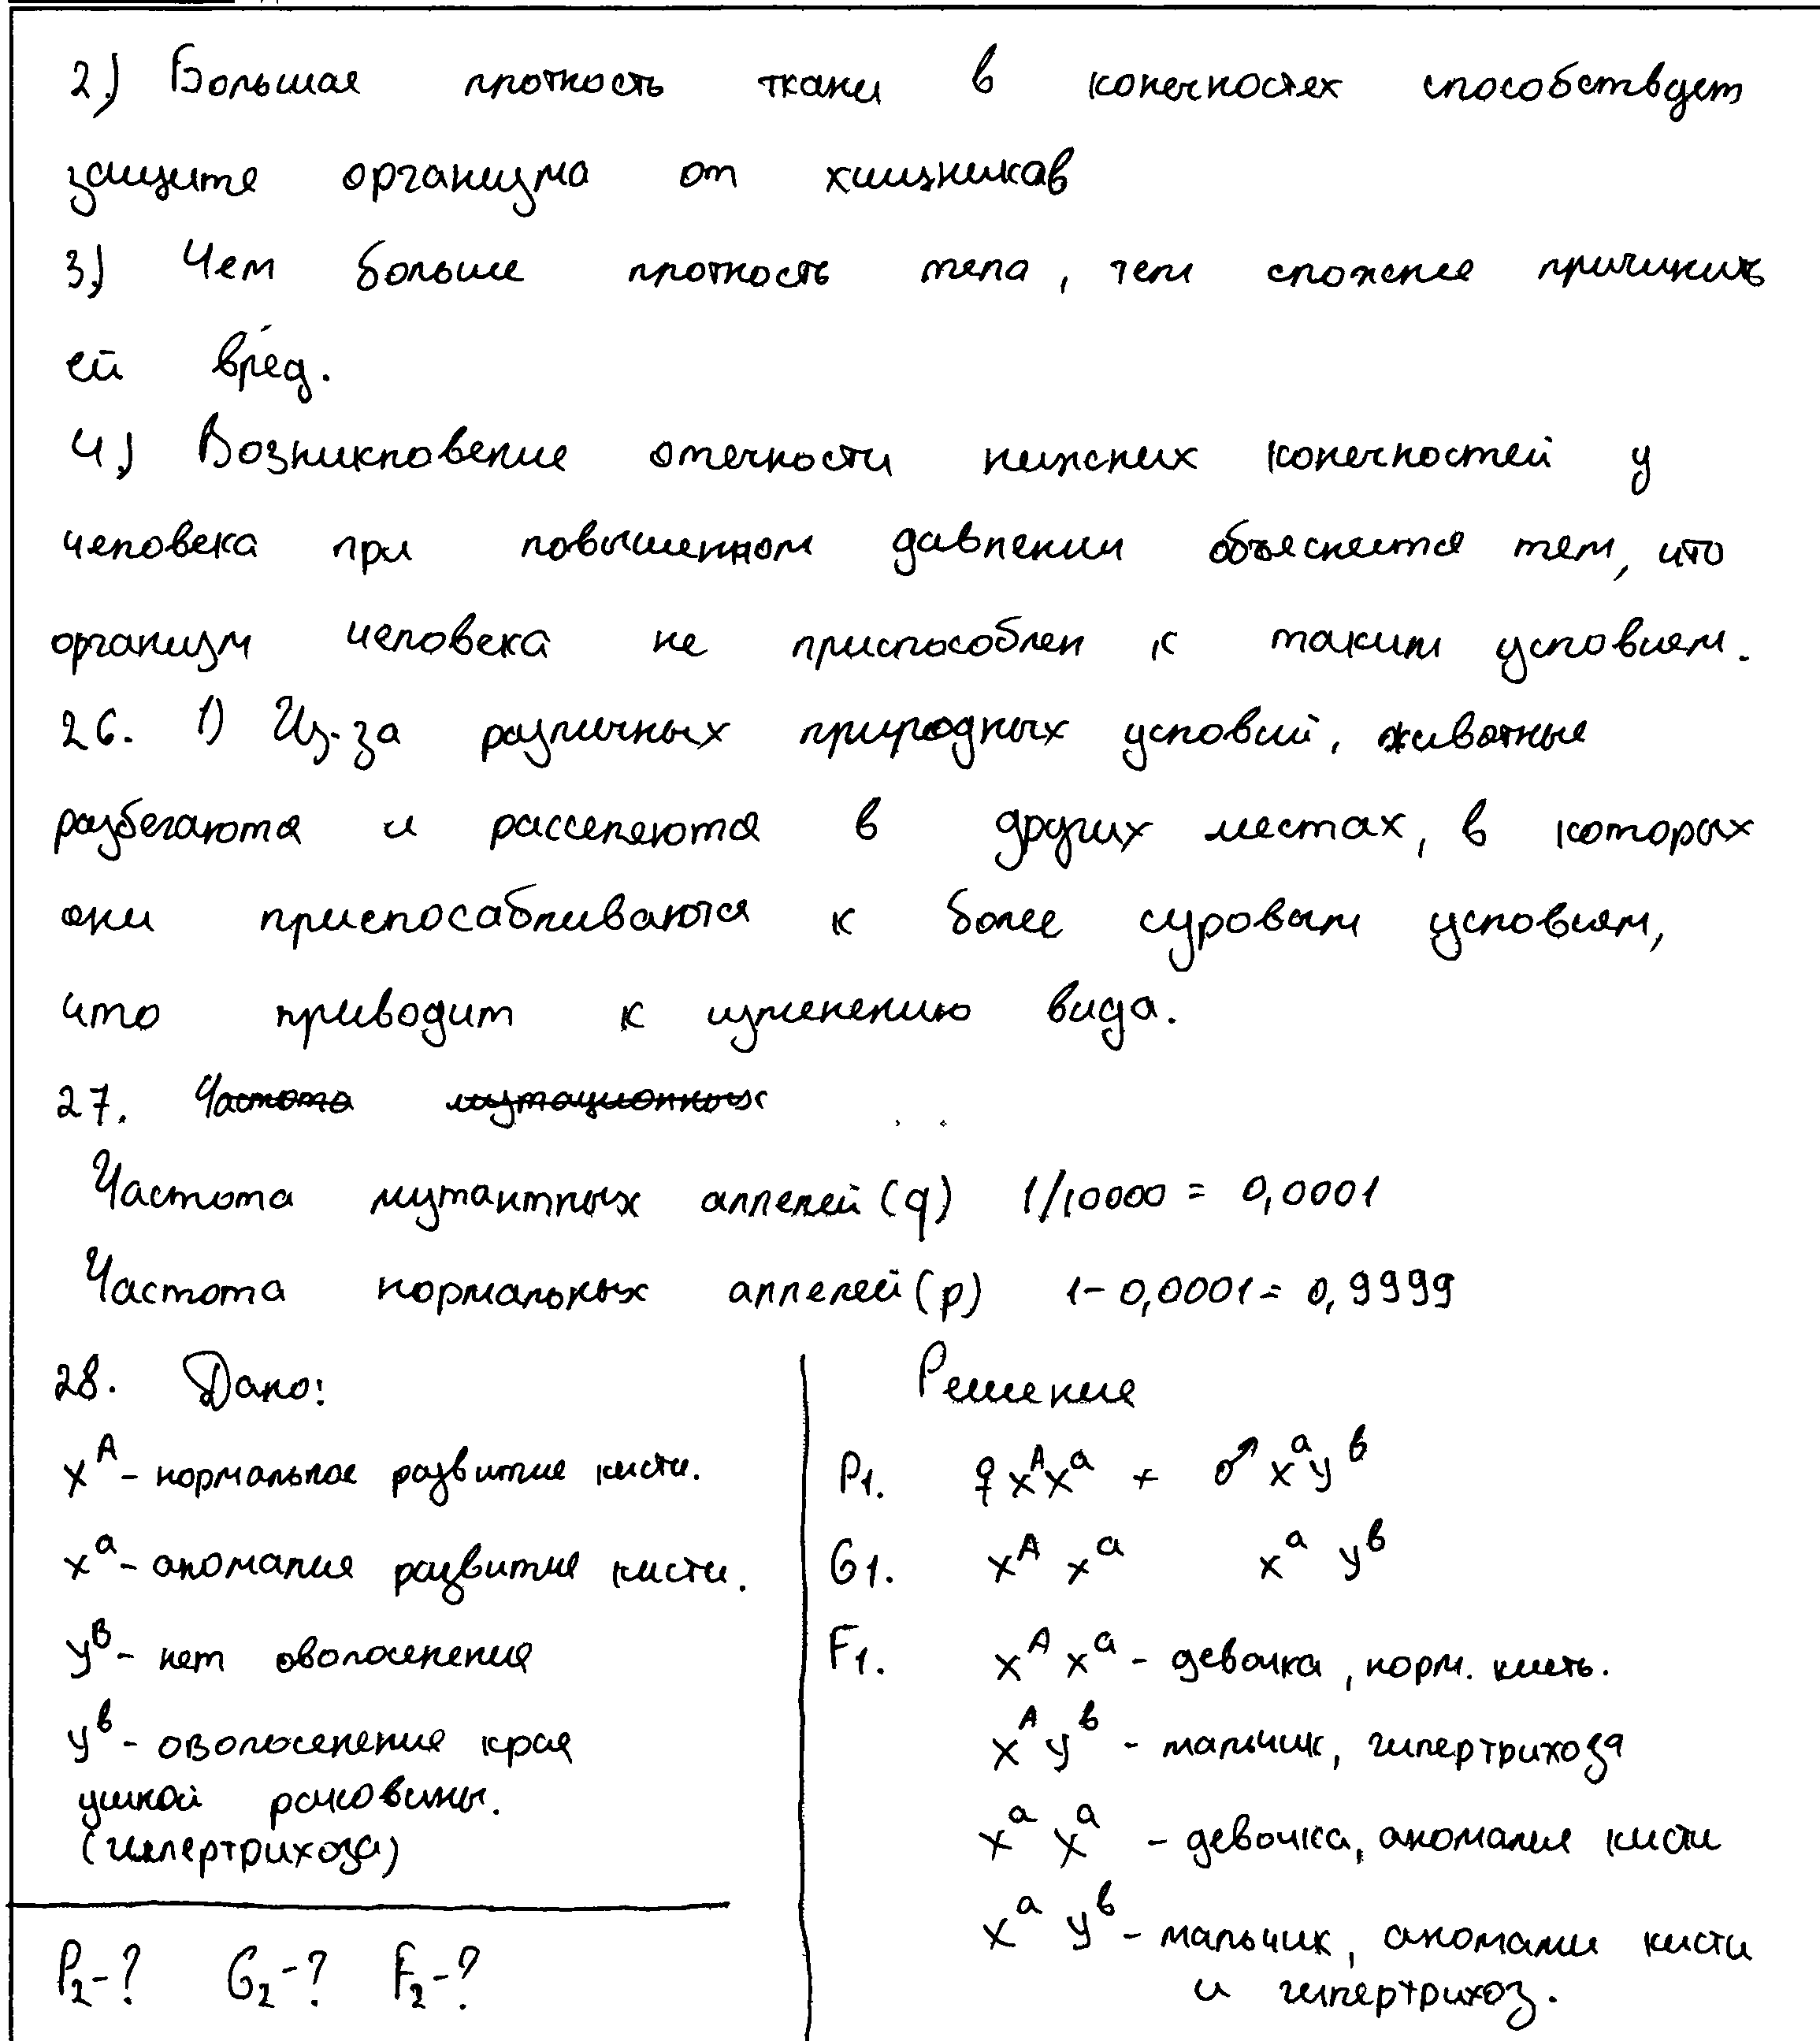 2.) Большая плотность ткани в конечностях способствует
защите организма от хищников
3.) Чем больше плотность тела, тем сложнее причинить
ей вред.
4.) Возникновение отечности нижних конечностей у
человека при повышенном давлении объясняется тем, что
организм человека не приспособлен к таким условиям.
26. 1) Из-за различных природных условий, животные
разбегаются и расселяются в других местах, в которых
они приспосабливаются к более суровым условиям,
что приводит к изменению вида.
27. Частота мутационных
Частота мутантных аллелей (q) 1/10000 = 0,0001
Частота нормальных аллелей (p) 1-0,0001= 0,9999
28. Дано:
X^A - нормальное развитие кисти.
X^a - аномалия развитие кисти.
Y^B - нет оволосенения
Y^b - оволосенение края
ушной раковины.
(гипертрихоза)
P₂-? G₂-? F₂-?
Решение
P1. ♀ X^A X^a × ♂ X^a Y^b
G1. X^A X^a X^a Y^b
F1. X^A X^a - девочка, норм. кисть.
X^A Y^b - мальчик, гипертрихоза
X^a X^a - девочка, аномалия кисти
X^a Y^b - мальчик, аномалии кисти
и гипертрихоз.